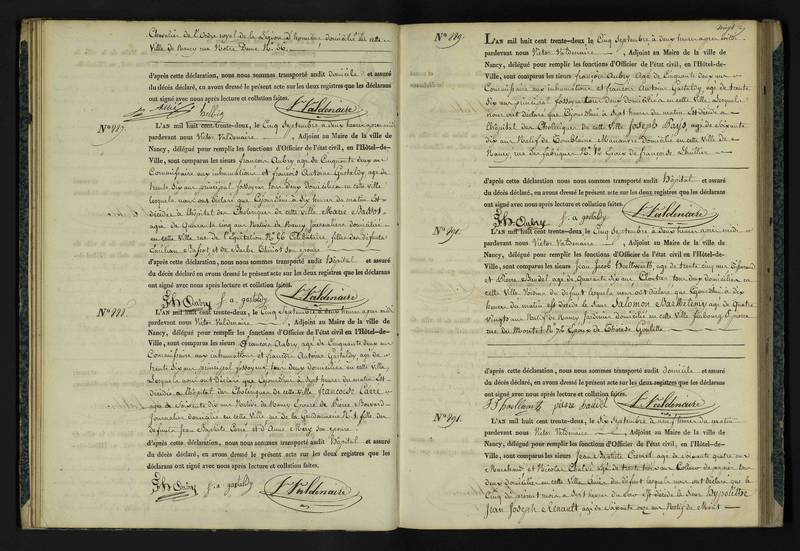 Chevalier de l'Ordre royal de la Légion d'honneur, domicilié en cette
Ville de Nancy rue Notre Dame N.° 36.
d'après cette déclaration, nous nous sommes transporté audit domicile et assuré
du décès déclaré, en avons dressé le présent acte sur les deux registres que les déclarans
ont signé avec nous après lecture et collation faites.
Valdenaire
N.° 887.
L'AN mil huit cent trente-deux, le Cinq Septembre à deux heures après midi
pardevant nous Victor Valdenaire, Adjoint au Maire de la ville de
Nancy, délégué pour remplir les fonctions d'Officier de l'état civil, en l'Hôtel-de-
Ville, sont comparus les sieurs françois Aubry âgé de Cinquante deux ans
Commissaire aux inhumations et françois Antoine Gastaldy, âgé de
trente six ans principal fossoyeur tous deux domiciliés en cette Ville
lesquels nous ont déclaré que Cejourd'hui à six heures du matin Est
décédée à l'hôpital des Cholériques de cette ville Marie
âgée de Quarante cinq ans Native de Nancy Journalière domiciliée
en cette Ville rue de l'équitation N.° 26 Célibataire, fille des défunts
d'après cette déclaration, nous nous sommes transporté audit Hôpital et assuré
du décès déclaré, en avons dressé le présent acte sur les deux registres que les déclarans
ont signé avec nous après lecture et collation faites.
Aubry f. a. gastaldy Valdenaire
N.° 888.
L'AN mil huit cent trente-deux, le Cinq Septembre à deux heures après midi
pardevant nous Victor Valdenaire, Adjoint au Maire de la ville de
Nancy, délégué pour remplir les fonctions d'Officier de l'état civil en l'Hôtel-de-
Ville, sont comparus les sieurs françois Aubry, âgé de Cinquante deux ans
Commissaire aux inhumations et françois Antoine Gastaldy âgé de
trente six ans principal fossoyeur, tous deux domiciliés en cette Ville,
Lesquels nous ont déclaré que Cejourd'hui à sept heures du matin Est
décédée à l'hôpital des Cholériques de cette ville françoise Carré
âgée de Soixante dix ans Native de Nancy Epouse de Pierre
Journalier domiciliée en cette Ville rue de la Gendarmerie N.° 1. fille des
défunts Jean Baptiste Carré et d'Anne Mery son épouse
d'après cette déclaration, nous nous sommes transporté audit Hôpital et assuré
du décès déclaré, en avons dressé le présent acte sur les deux registres que les
déclarans ont signé avec nous après lecture et collation faites.
Aubry f. a. gastaldy Valdenaire
N.° 889.
L'AN mil huit cent trente-deux le Cinq Septembre à deux heures après midi
pardevant nous Victor Valdenaire, Adjoint au Maire de la ville de
Nancy, délégué pour remplir les fonctions d'Officier de l'état civil, en l'Hôtel-de-
Ville, sont comparus les sieurs françois Aubry âgé de Cinquante deux ans
Commissaire aux inhumations et françois Antoine Gastaldy, âgé de trente
Six ans principal fossoyeur tous deux domiciliés en cette Ville, Lesquels
nous ont déclaré que Cejourd'hui à sept heures du matin Est décédé à
l'hôpital des Cholériques de cette Ville Joseph Pays, âgé de Soixante
dix ans Natif de Manœuvre Domicilié en cette Ville de
Nancy rue des fabriques N.° Epoux de françoise Thuillier
d'après cette déclaration, nous nous sommes transporté audit Hôpital et assuré
du décès déclaré, en avons dressé le présent acte sur les deux registres que les déclarans
ont signé avec nous après lecture et collation faites.
Aubry f. a. gastaldy Valdenaire
L'AN mil huit cent trente-deux, le Cinq Septembre à deux heures après midi
pardevant nous Victor Valdenaire, Adjoint au Maire de la ville de
Nancy, délégué pour remplir les fonctions d'Officier de l'état civil en l'Hôtel-de-
Ville, sont comparus les sieurs Jean Jacob, âgé de trente cinq ans
et Pierre âgé de Quarante six ans Cloutier tous deux domiciliés en
cette Ville Voisins du défunt lesquels nous ont déclaré que Cejourd'hui à dix
heures du matin est décédé le Sieur Salomon Barthélemy âgé de Quatre
Vingts ans Natif de Nancy Jardinier domicilié en cette Ville, faubourg S.t pierre
rue du Montet N.° 76 Epoux de Thérèse
d'après cette déclaration, nous nous sommes transporté audit domicile et assuré
du décès déclaré, en avons dressé le présent acte sur les deux registres que les déclarans
ont signé avec nous après lecture et collation faites.
pierre Valdenaire
N.° 891.
L'AN mil huit cent trente-deux, le Six Septembre à neuf heures du matin
pardevant nous Victor Valdenaire, Adjoint au Maire de la ville de
Nancy, délégué pour remplir les fonctions d'Officier de l'état civil, en l'Hôtel-de-
Ville, sont comparus les sieurs Jean Baptiste âgé de soixante quatre ans
Marchand et Nicolas âgé de trente trois ans Colleur de papier tous
deux domiciliés en cette Ville Amis du défunt lesquels nous ont déclaré que le
Cinq du présent mois à sept heures du soir est décédé le Sieur Hypolitte
Jean Joseph Renault âgé de soixante onze ans Natif de